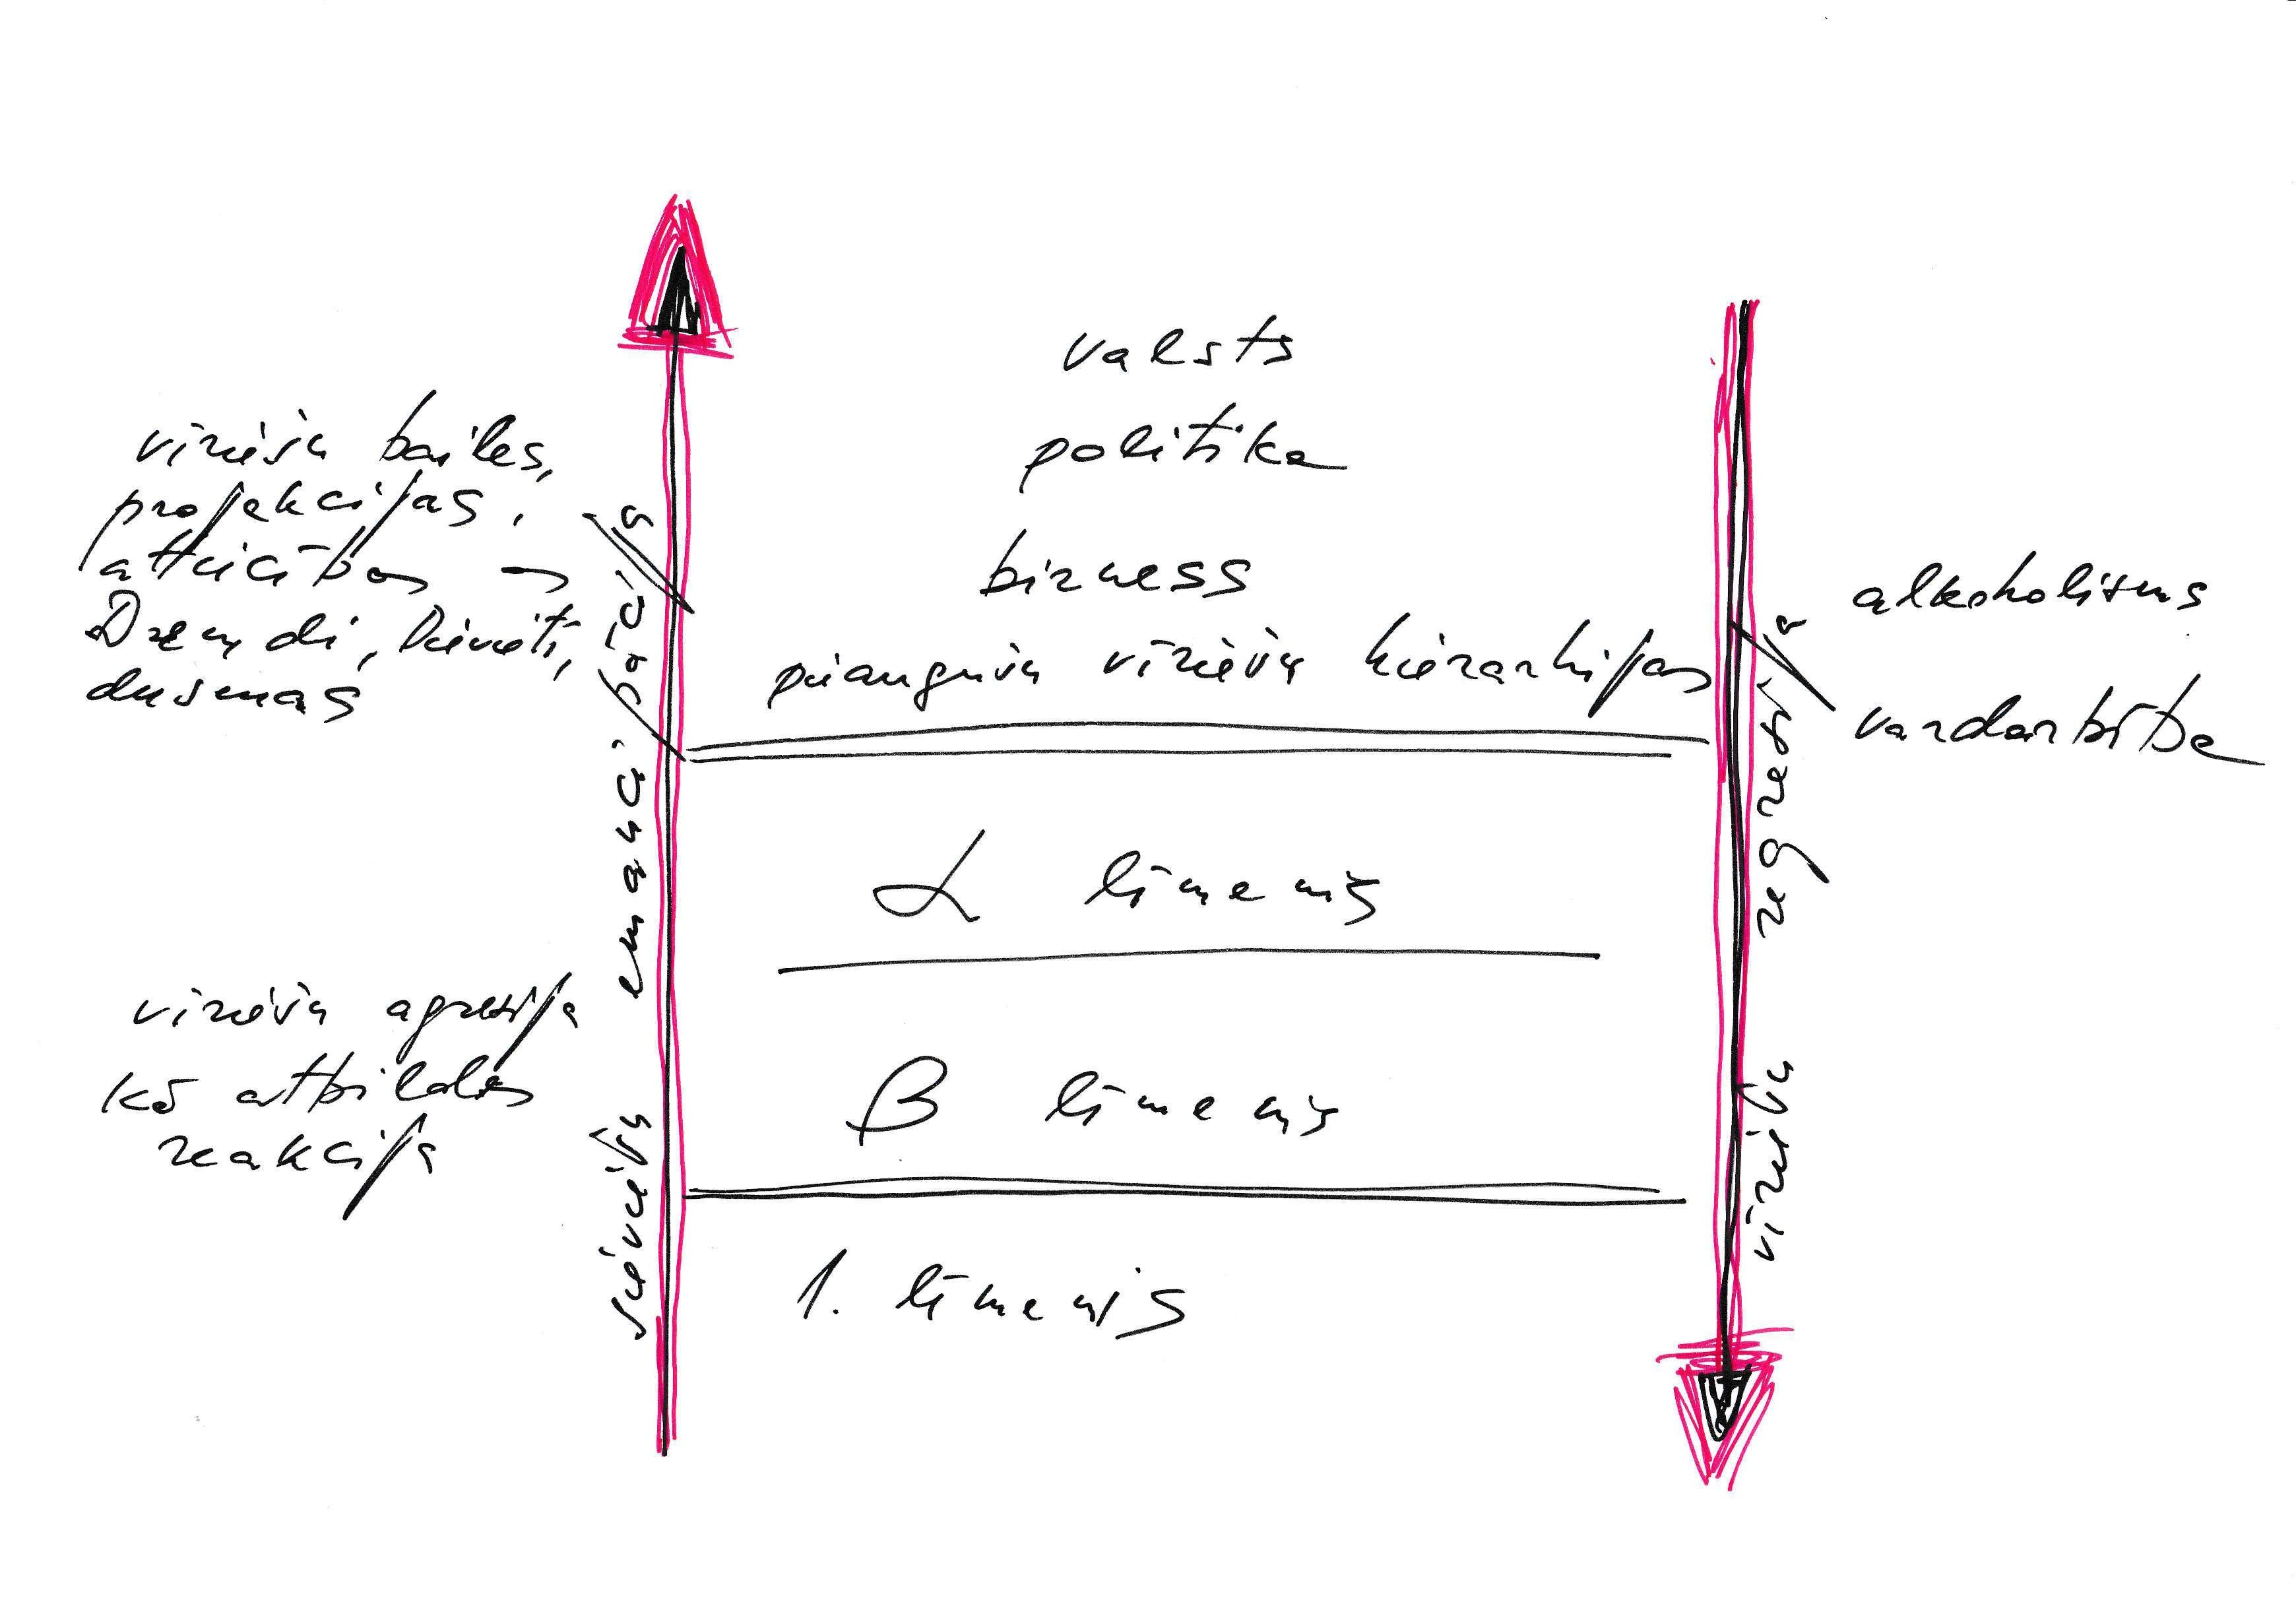 valsts
politika
bizness
pieaugušu vīriešu hierarhijas
vīriešu bailes,
projekcijas,
attiecības
Dzemdi, Sievieti,
dusmas
sieviešu emancipācija
alkoholisms
vardarbība
vīriešu regresija
α līmenis
β līmenis
vīriešu agresija
kā atbildes
reakcija
1. līmenis